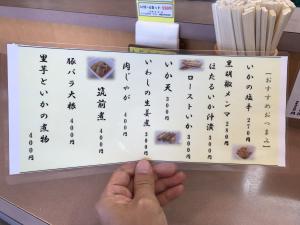 【おすすめおつまみ】
いかの塩辛 270円
黒胡椒メンマ 280円
ほたるいか沖漬 300円
ローストいか 300円
いか天 300円
いわしの生姜煮 300円
肉じゃが 400円
筑前煮 400円
豚バラ大根 400円
里芋といかの煮物 400円